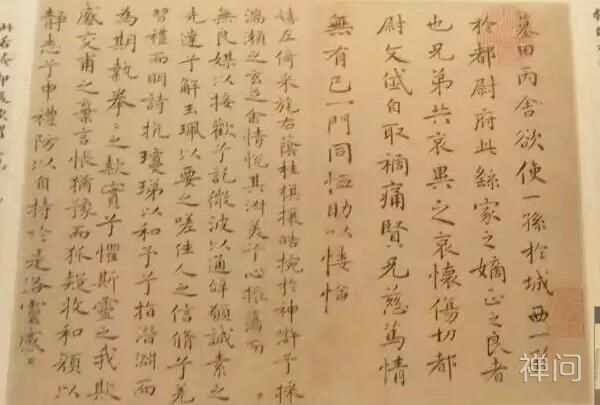 墓田丙舍欲使一孫於城西一
於都尉府此繇家之嫡正之良者
也兄弟共哀異之哀懷傷切都
尉文岱自取禍痛賢兄慈篤情
無有已一門同恤助以悽愴
嬉左倚采旄右蔭桂旗攘皓捥於神滸兮採
湍瀨之玄芝余情悅其淑美兮心振蕩而
無良媒以接歡兮託微波以通辭願誠素之
先達兮解玉珮以要之嗟佳人之信脩兮羌
習禮而明詩抗瓊珶以和予兮指潛淵而
為期執拳〻之款實兮懼斯靈之我欺
感交甫之棄言悵猶豫而狐疑收和顏以
静志兮申禮防以自持於是洛靈感
禅问